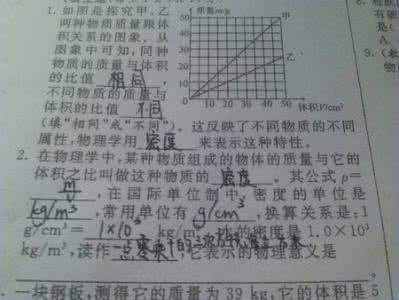 1. 如图是探究甲、乙
两种物质质量跟体
积关系的图象。从
图象中可知,同种
物质的质量与体积
的比值 相同 ,
不同物质的质量与
体积的比值 不同
(填“相同”或“不同”)。这反映了不同物质的不同
属性,物理学用 密度 来表示这种特性。
质量m/g
50
40
30
20
10
甲
乙
10 20 30 40 50 体积V/cm³
2. 在物理学中,某种物质组成的物体的质量与它的
体积之比叫做这种物质的 密度 。其公式ρ=
m
,在国际单位制中,密度的单位是
kg/m³ ,常用单位有 g/cm³ ,换算关系是:1
g/cm³= 1×10³ kg/m³,水的密度是1.0×10³
kg/m³,读作 ,它表示的物理意义是
一块钢板,测得它的质量为39 kg,它的体积是5